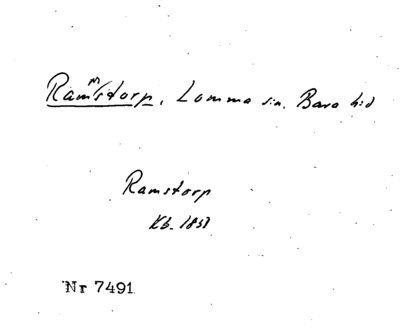 Rammstorp, Lomma sn. Bara hd
Ramstorp
Kb. 1831
Nr 7491